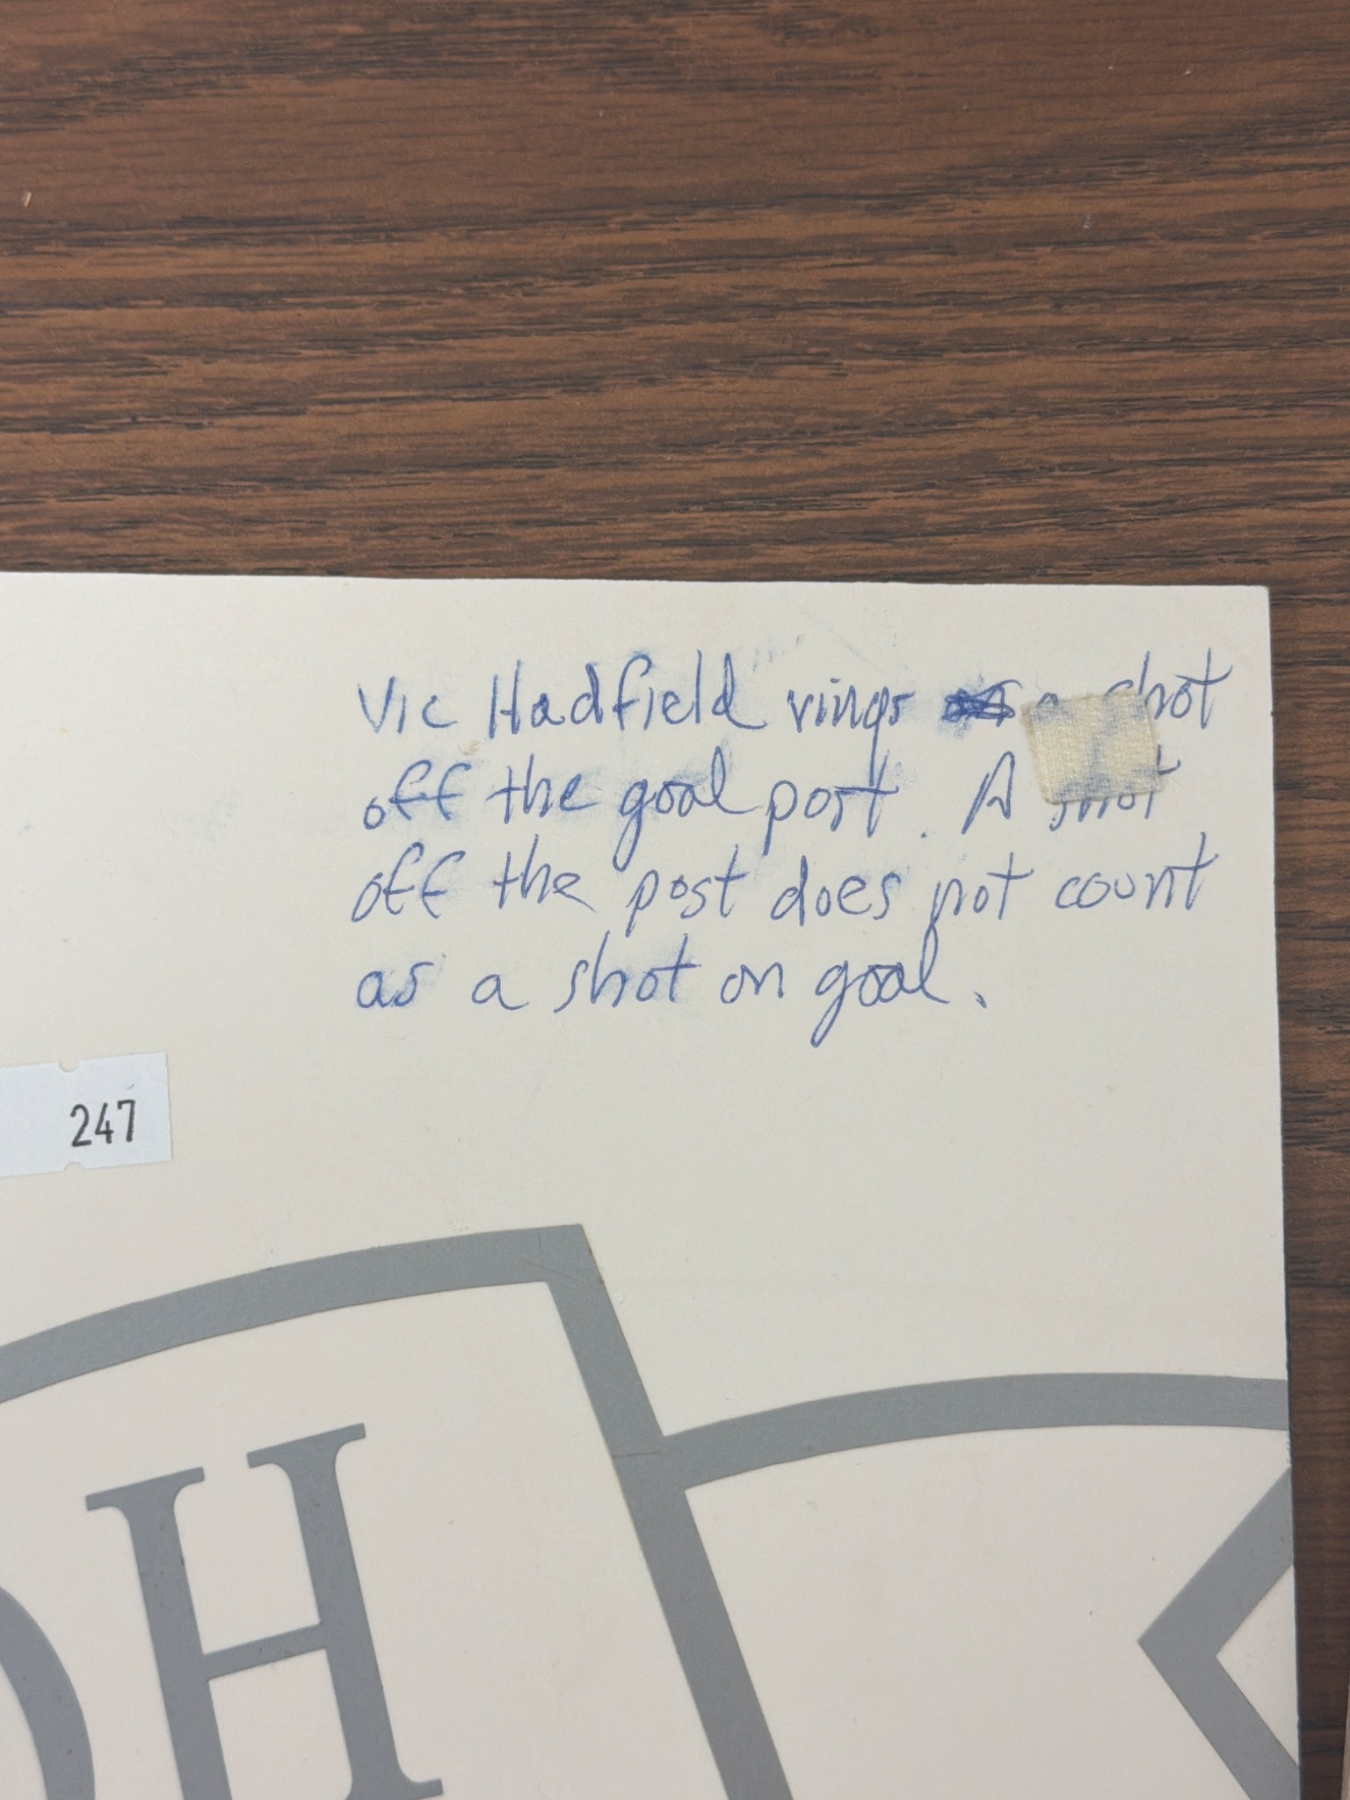 Vic Hadfield rings a shot
off the goal post. A shot
off the post does not count
as a shot on goal.
247
H